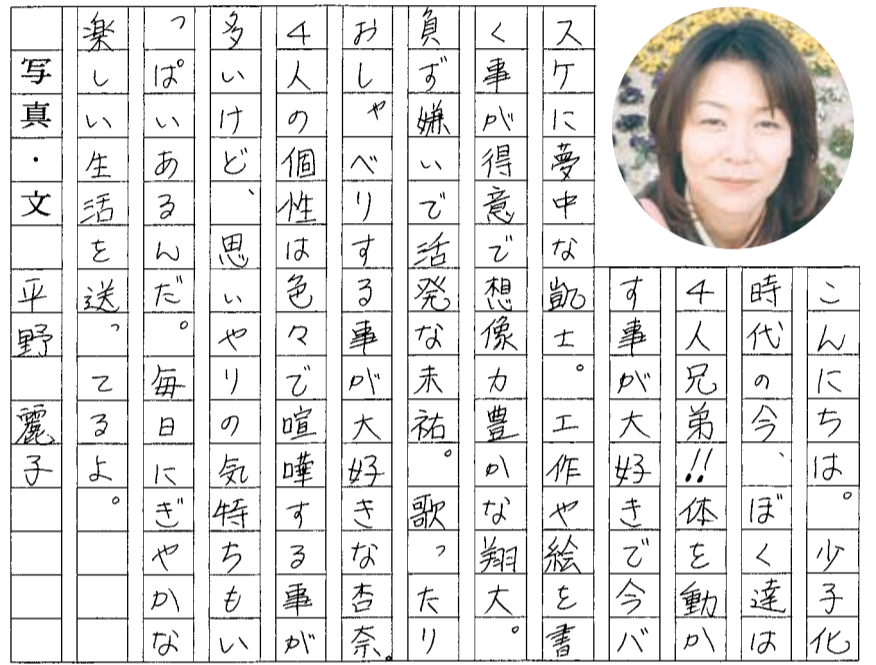 こんにちは。少子化
時代の今、ぼく達は
4人兄弟!!体を動か
す事が大好きで今バ
スケに夢中な凱士。工作や絵を書
く事が得意で想像力豊かな翔大。
負ず嫌いで活発な未祐。歌ったり
おしゃべりする事が大好きな杏奈。
4人の個性は色々で喧嘩する事が
多いけど、思いやりの気持ちもい
っぱいあるんだ。毎日にぎやかな
楽しい生活を送ってるよ。
写真・文 平野 麗子